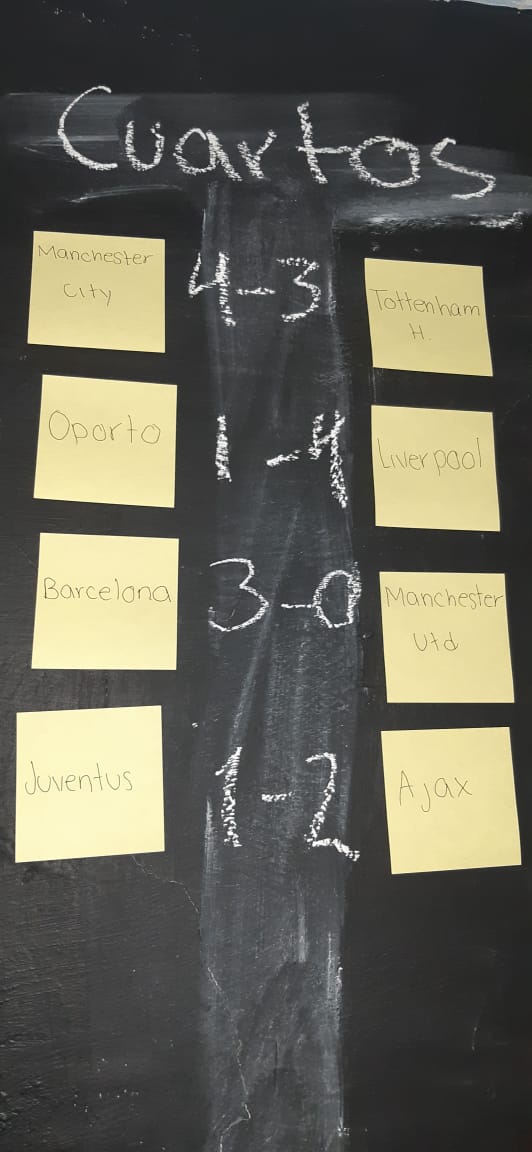 Cuartos
Manchester
City
4-3
Tottenham
H.
Oporto
1-4
Liverpool
Barcelona
3-0
Manchester
Utd
Juventus
1-2
Ajax